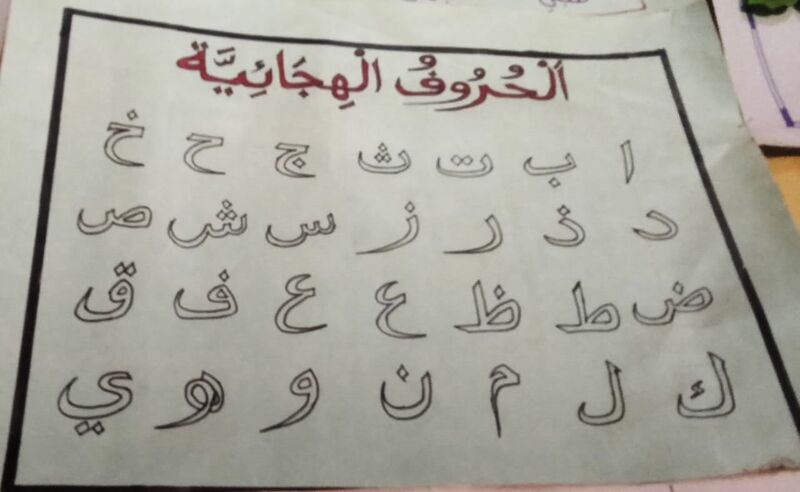 اَلْحُرُوفُ الْهِجَائِيَّة
ا ب ت ث ج ح خ
د ذ ر ز س ش ص
ض ط ظ ع ع ف ق
ك ل م ن و هو ي